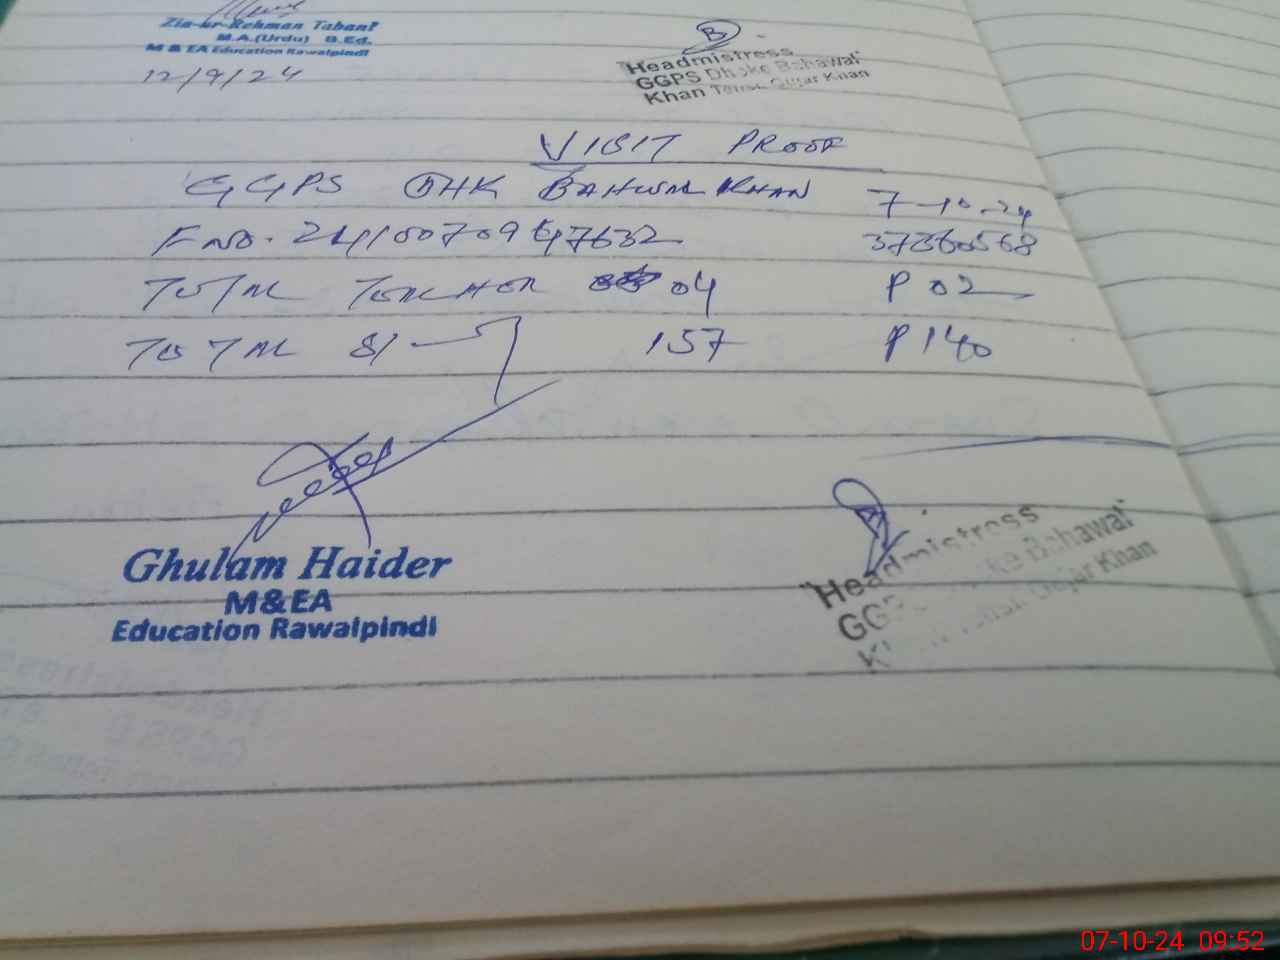 Zia-ur-Rehman Tabani
M.A.(Urdu) B.Ed.
M & EA Education Rawalpindi
12/9/24
Headmistress
GGPS Dhoke Bahawal
Khan Tehsil Gujar Khan
VISIT PROOF
GGPS DHK BAHWAL KHAN 7-10-24
F NO. 2410070947632 37360568
TOTAL TEACHER 04 P 02
TOTAL S/ 157 P 140
Ghulam Haider
M&EA
Education Rawalpindi
Headmistress
GGPS Dhoke Bahawal
Khan Tehsil Gujar Khan
07-10-24 09:52